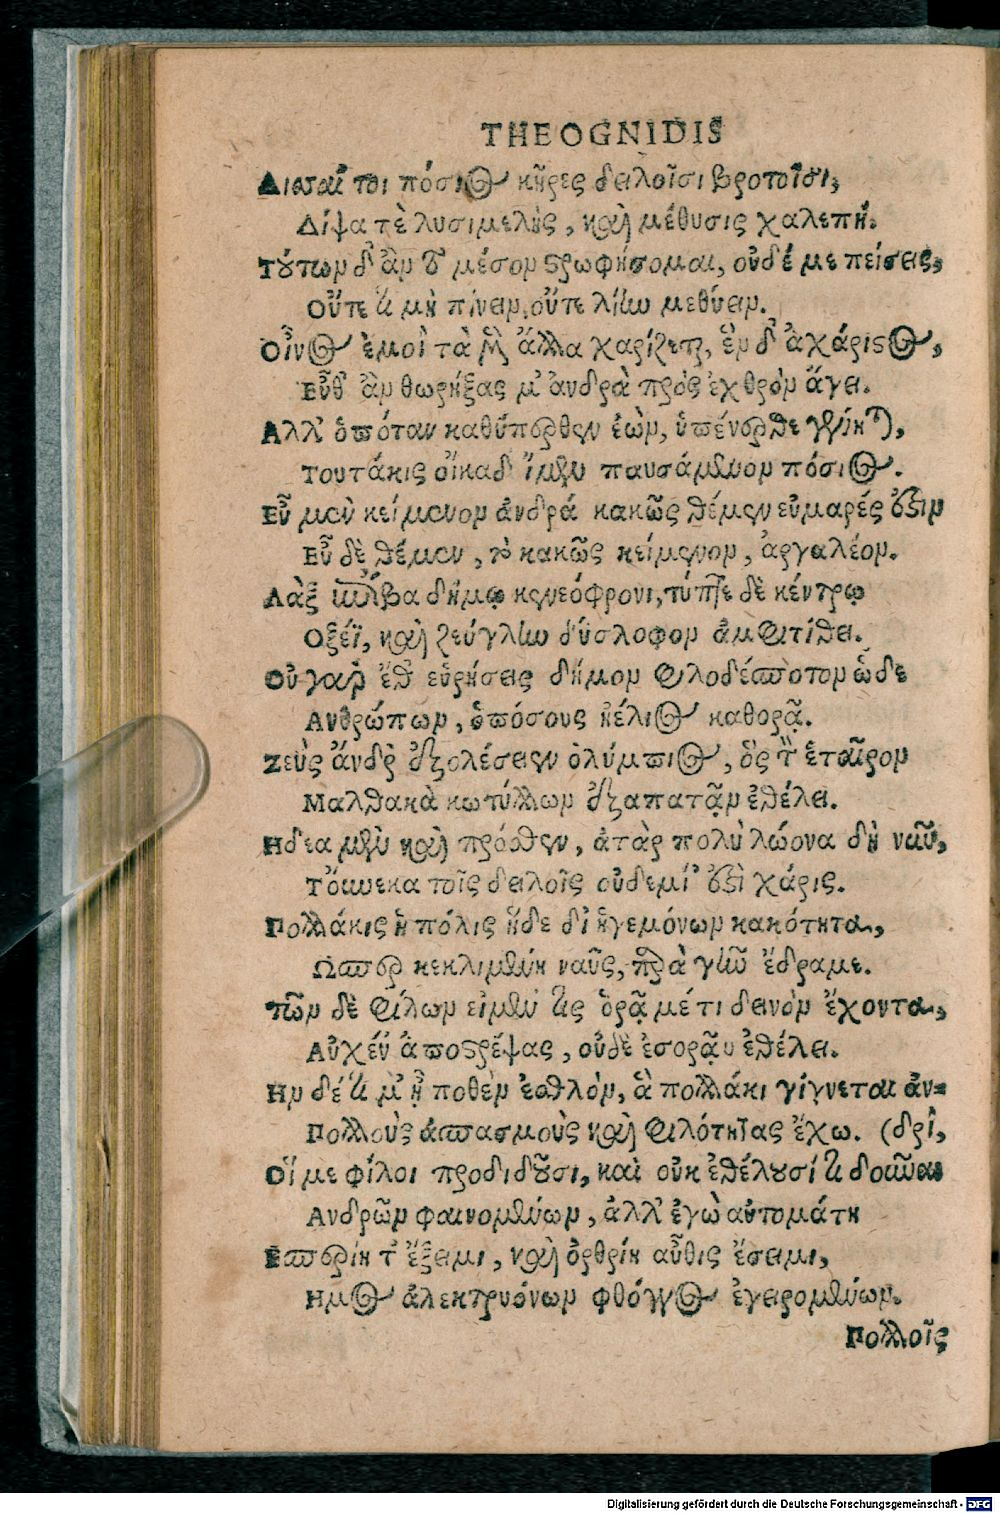 THEOGNIDIS
Δισσαί τοι πόσιος κῆρες δειλοῖσι βροτοῖσι,
Δίψα τὲ λυσιμελὴς, καὶ μέθυσις χαλεπή.
Τούτων δ' ἂν τὸ μέσον στρωφήσομαι, οὐδέ με πείσεις,
Οὔτε τὶ μὴ πίνειν, οὔτε λίην μεθύειν.
Οἶνος ἐμοὶ τὰ μὲν ἄλλα χαρίζεται, ἓν δ' ἀχάριστος,
Εὖθ' ἂν θωρήξας μ' ἀνδρὰ πρὸς ἐχθρὸν ἄγει.
Αλλ' ὁπόταν καθύπερθεν ἐὼν, ὑπένερθε γένηται,
Τουτάκις οἴκαδ' ἴμεν παυσάμενον πόσιος.
Εὖ μὲν κείμενον ἀνδρά κακῶς θέμεν εὐμαρές ἐστιν
Εὖ δὲ θέμεν, τὸ κακῶς κείμενον, ἀργαλέον.
Λὰξ ἐπίβα δήμῳ κενεόφρονι, τύπτε δὲ κέντρῳ
Οξέϊ, καὶ ζεύγλην δύσλοφον ἀμφιτίθει.
Οὐ γαρ ἔθ' εὑρήσεις δῆμον φιλοδέσποτον ὧδε
Ανθρώπων, ὁπόσους ἠέλιος καθορᾷ.
Ζεὺς ἄνδρ' ἐξολέσειεν ὀλύμπιος, ὃς τὸν ἑταῖρον
Μαλθακὰ κωτίλλων ἐξαπατᾷν ἐθέλει.
Ηδεα μὲν καὶ πρόσθεν, ἀτὰρ πολὺ λώονα δὴ ναῦ,
Τοὔνεκα τοῖς δειλοῖς οὐδεμί' ἐστὶ χάρις.
Πολλάκις ἡ πόλις ἥδε δι' ἡγεμόνων κακότητα,
Ωσπερ κεκλιμένη ναῦς, παρὰ γῆν ἔδραμε.
Τῶν δὲ φίλων εἰ μέν τὶς ὁρᾷ μέ τι δεινὸν ἔχοντα,
Αὐχέν' ἀποστρέψας, οὐδὲ ἐσορᾷν ἐθέλει.
Ην δέ τὶ μ' ᾖ ποθὲν ἐσθλὸν, ἃ πολλάκι γίγνεται ἀν-
Πολλοὺς ἀσπασμοὺς καὶ φιλότητας ἔχω. (δρὶ,
Οἵ με φίλοι προδιδοῦσι, καὶ οὐκ ἐθέλουσί τὶ δοῦναι
Ανδρῶν φαινομένων, ἀλλ' ἐγὼ αὐτομάτη
Εσπερίη τ' ἔξειμι, καὶ ὀρθρίη αὖθις ἔσειμι,
Ημος ἀλεκτρυόνων φθόγγος ἐγειρομένων.
Πολλοῖς
Digitalisierung gefördert durch die Deutsche Forschungsgemeinschaft - DFG